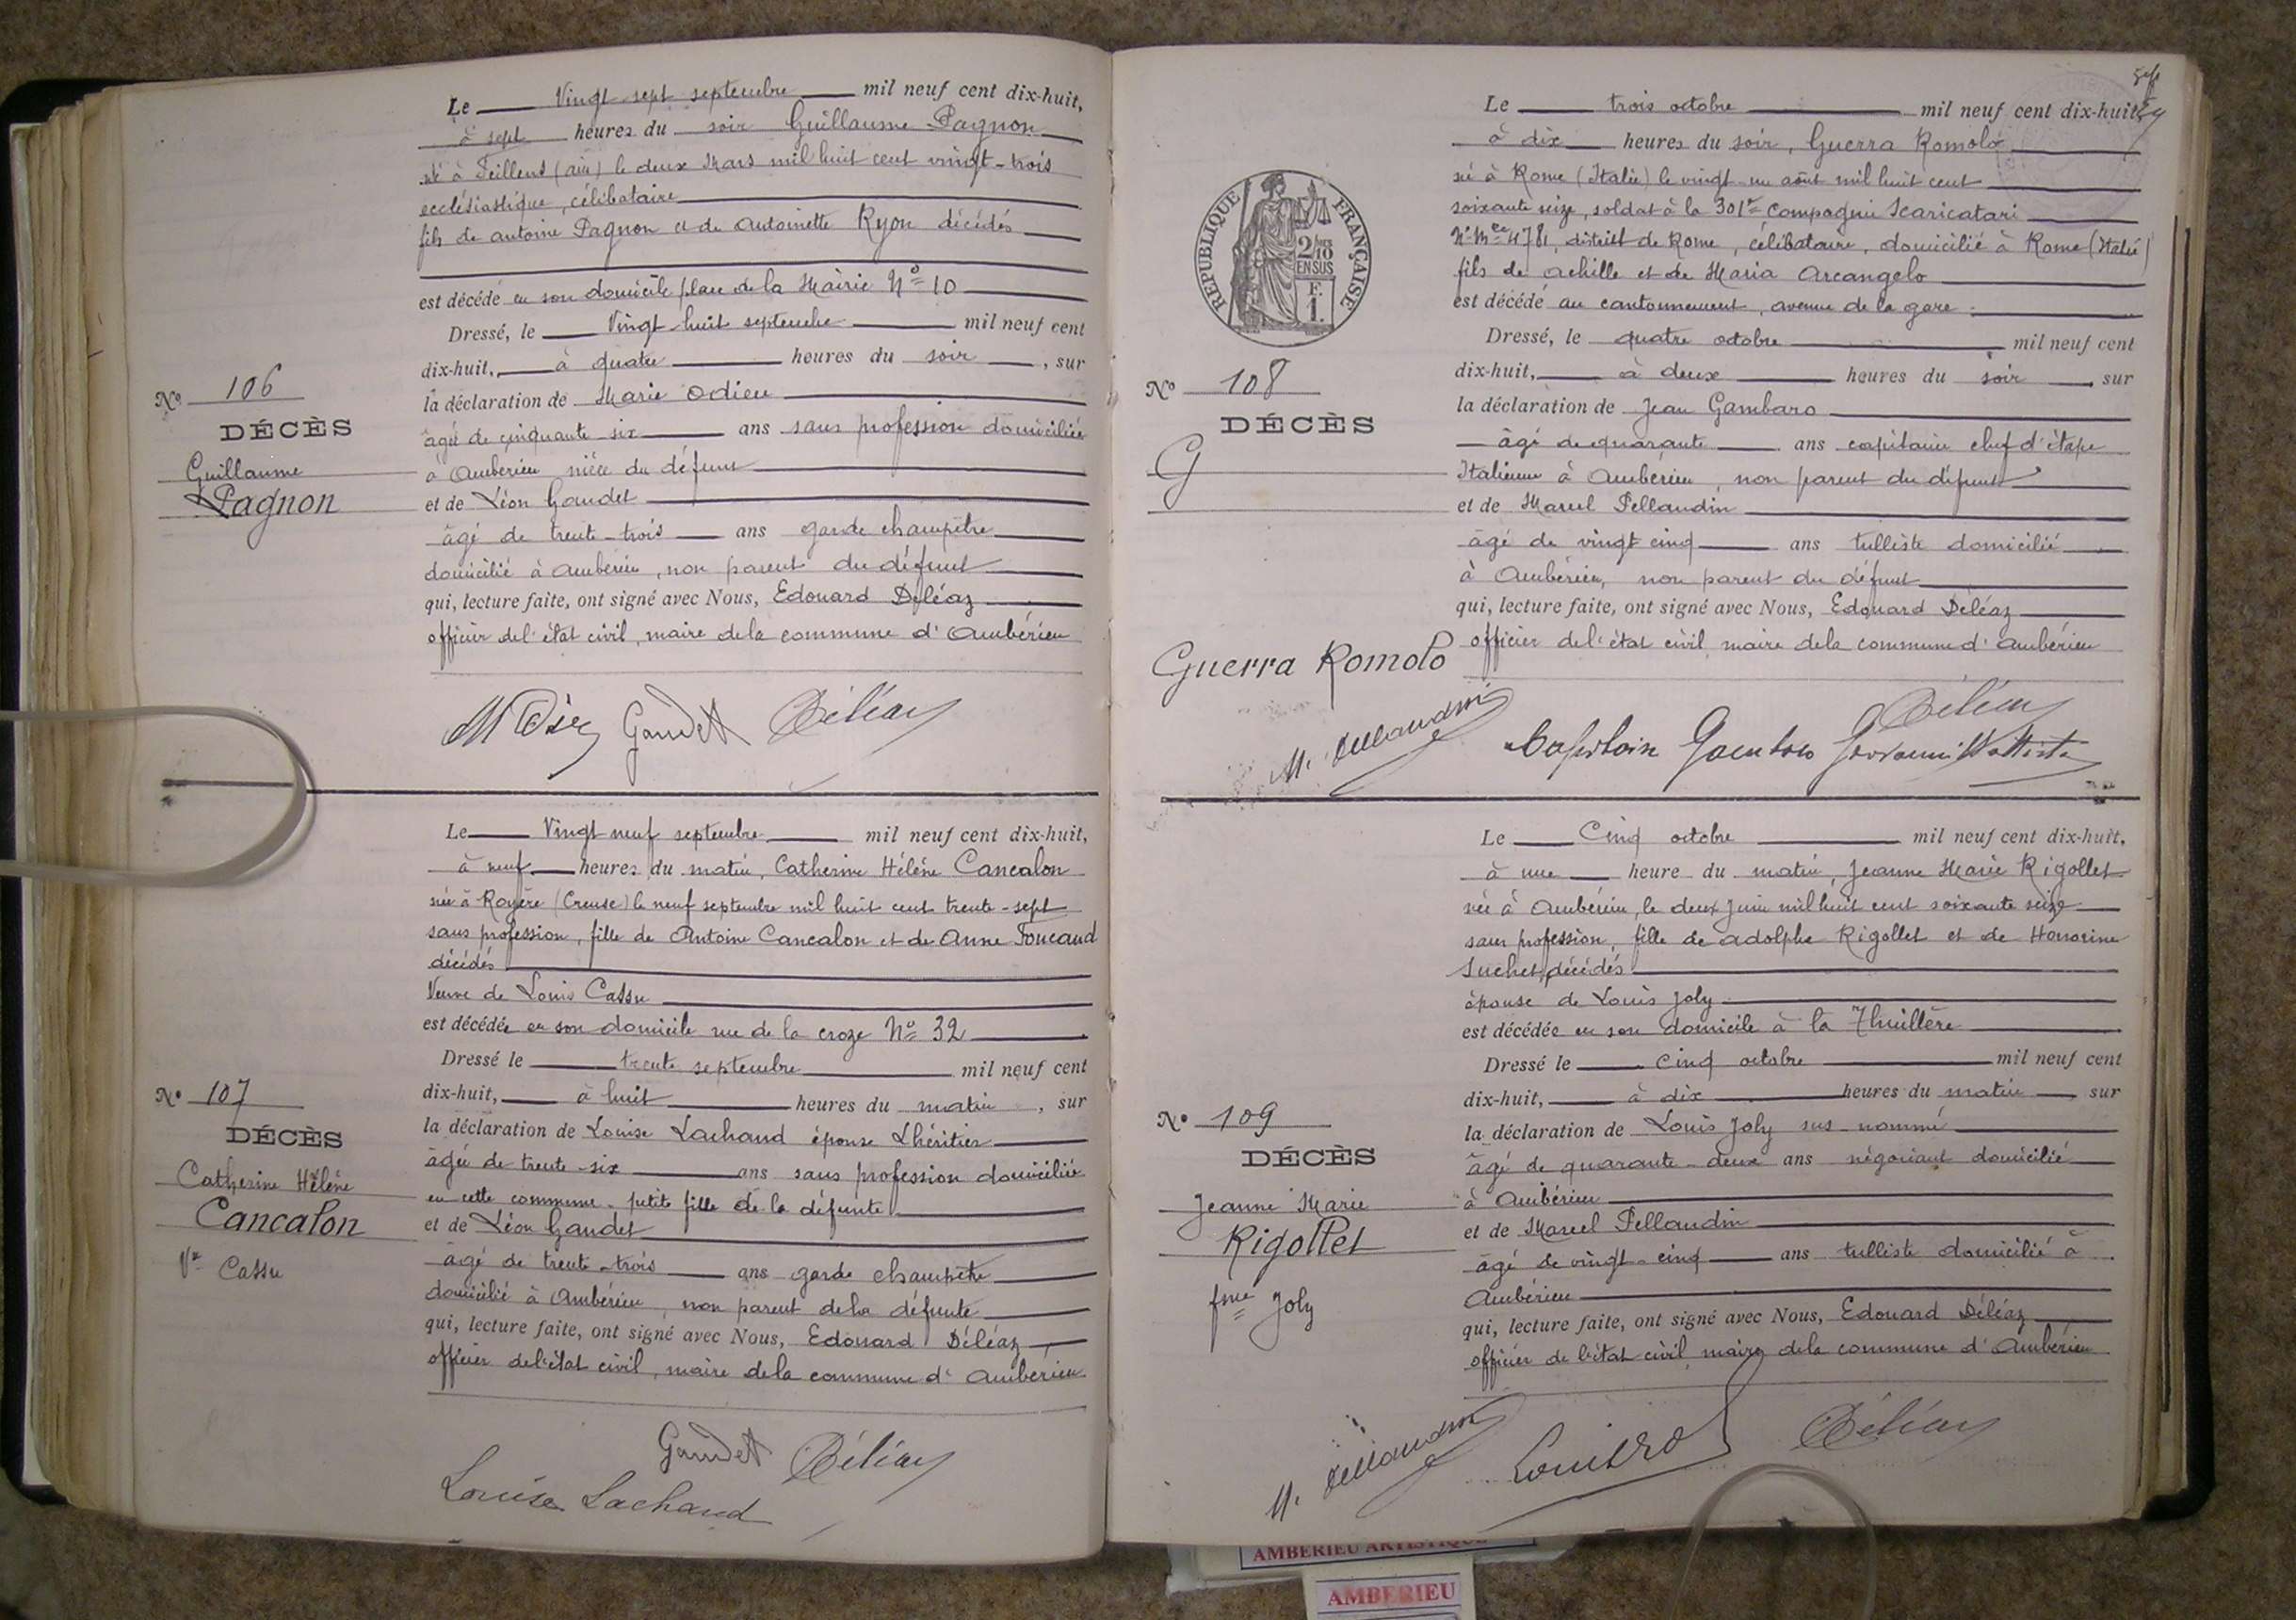 Le Vingt-sept septembre mil neuf cent dix-huit,
à sept heures du soir Guillaume Pagnon
né à Feillens (ain) le deux Mars mil huit cent vingt-trois
ecclésiastique, célibataire
fils de antoine Pagnon et de Antoinette Ryon décédés
est décédé en son domicile place de la Mairie No 10
Dressé, le Vingt-huit septembre mil neuf cent
dix-huit, à quatre heures du soir, sur
la déclaration de Marie Odieu
âgée de cinquante-six ans sans profession domiciliée
à Ambérieu nièce du défunt
et de Léon Gaudet
âgé de trente-trois ans garde champêtre
domicilié à Ambérieu, non parent du défunt
qui, lecture faite, ont signé avec Nous, Edouard Déléaz
officier de l'état civil, maire de la commune d'Ambérieu
No 106
DÉCÈS
Guillaume
Pagnon
Gaudet Déléaz
Le Vingt neuf septembre mil neuf cent dix-huit,
à neuf heures du matin, Catherine Hélène Cancalon
née à Royère (Creuse) le neuf septembre mil huit cent trente-sept
sans profession, fille de Antoine Cancalon et de Anne Foucaud
décédés
Veuve de Louis Cassu
est décédée en son domicile rue de la croze No 32
Dressé le trente septembre mil neuf cent
dix-huit, à huit heures du matin, sur
la déclaration de Louise Lachaud épouse Lhéritier
âgée de trente-six ans sans profession domiciliée
en cette commune petite fille de la défunte
et de Léon Gaudet
âgé de trente-trois ans garde champêtre
domicilié à Ambérieu, non parent de la défunte
qui, lecture faite, ont signé avec Nous, Edouard Déléaz
officier de l'état civil, maire de la commune d'Ambérieu
No 107
DÉCÈS
Catherine Hélène
Cancalon
Ve Cassu
Gaudet Déléaz
Louise Lachaud
Le trois octobre mil neuf cent dix-huit
à dix heures du soir, Guerra Romolo
né à Rome (Italie) le vingt-un août mil huit cent
soixante seize, soldat à la 301e Compagnie Scaricatari
No Mle 4781, district de Rome, célibataire, domicilié à Rome (Italie)
fils de Achille et de Maria Arcangelo
est décédé au cantonnement, avenue de la gare.
Dressé, le quatre octobre mil neuf cent
dix-huit, à deux heures du soir, sur
la déclaration de Jean Gambaro
âgé de quarante ans capitaine chef d'étape
Italienne à Ambérieu, non parent du défunt
et de Marcel Pellaudin
âgé de vingt cinq ans tulliste domicilié
à Ambérieu, non parent du défunt
qui, lecture faite, ont signé avec Nous, Edouard Déléaz
officier de l'état civil maire de la commune d'Ambérieu
RÉPUBLIQUE FRANÇAISE
2/10
EN SUS
F.
1.
No 108
DÉCÈS
G
Guerra Romolo
M. Pellaudin Capitain Gambaro Giovanni Battista Déléaz
Le Cinq octobre mil neuf cent dix-huit,
à une heure du matin, Jeanne Marie Rigollet
née à Ambérieu, le deux Juin mil huit cent soixante seize
sans profession, fille de Adolphe Rigollet et de Honorine
Suchet, décédés
épouse de Louis Joly
est décédée en son domicile à la Thuillère
Dressé le Cinq octobre mil neuf cent
dix-huit, à dix heures du matin sur
la déclaration de Louis Joly sus-nommé
âgé de quarante-deux ans négociant domicilié
à Ambérieu
et de Marcel Pellaudin
âgé de vingt-cinq ans tulliste domicilié à
Ambérieu
qui, lecture faite, ont signé avec Nous, Edouard Déléaz
officier de l'état civil maire de la commune d'Ambérieu
No 109
DÉCÈS
Jeanne Marie
Rigollet
fme Joly
M. Pellaudin Déléaz
AMBERIEU ARTISTIQUE
AMBERIEU